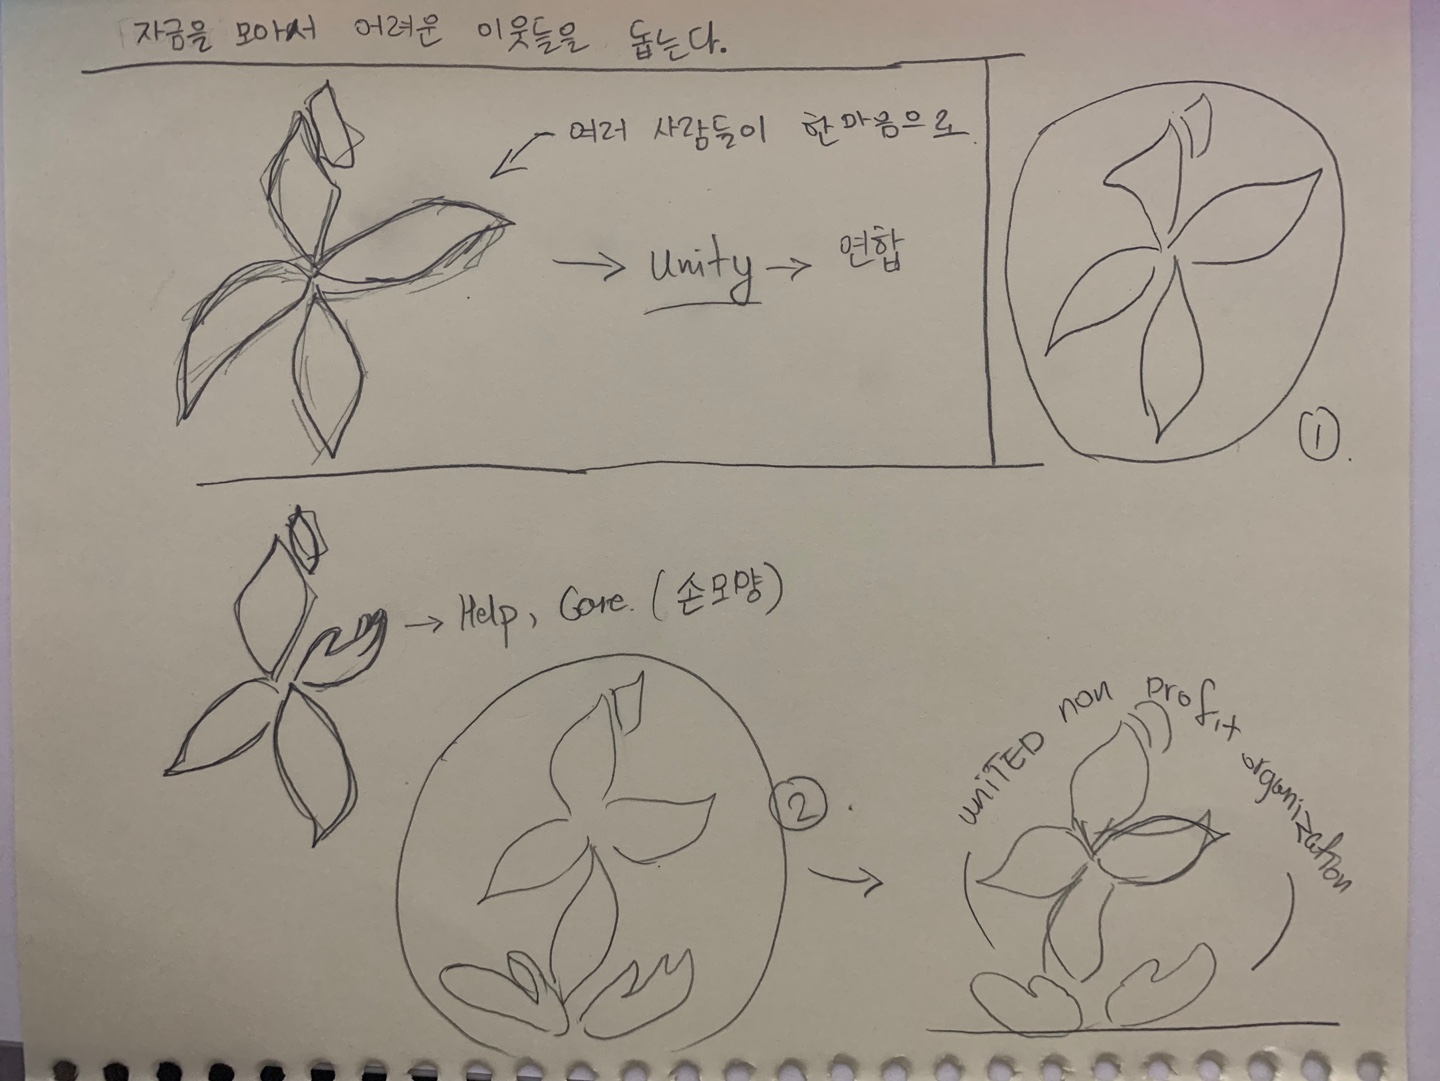 자금을 모아서 어려운 이웃들을 돕는다.
여러 사람들이 한마음으로.
→ Unity → 연합
①.
→ Help, Care. (손모양)
②.
UNITED non profit organization